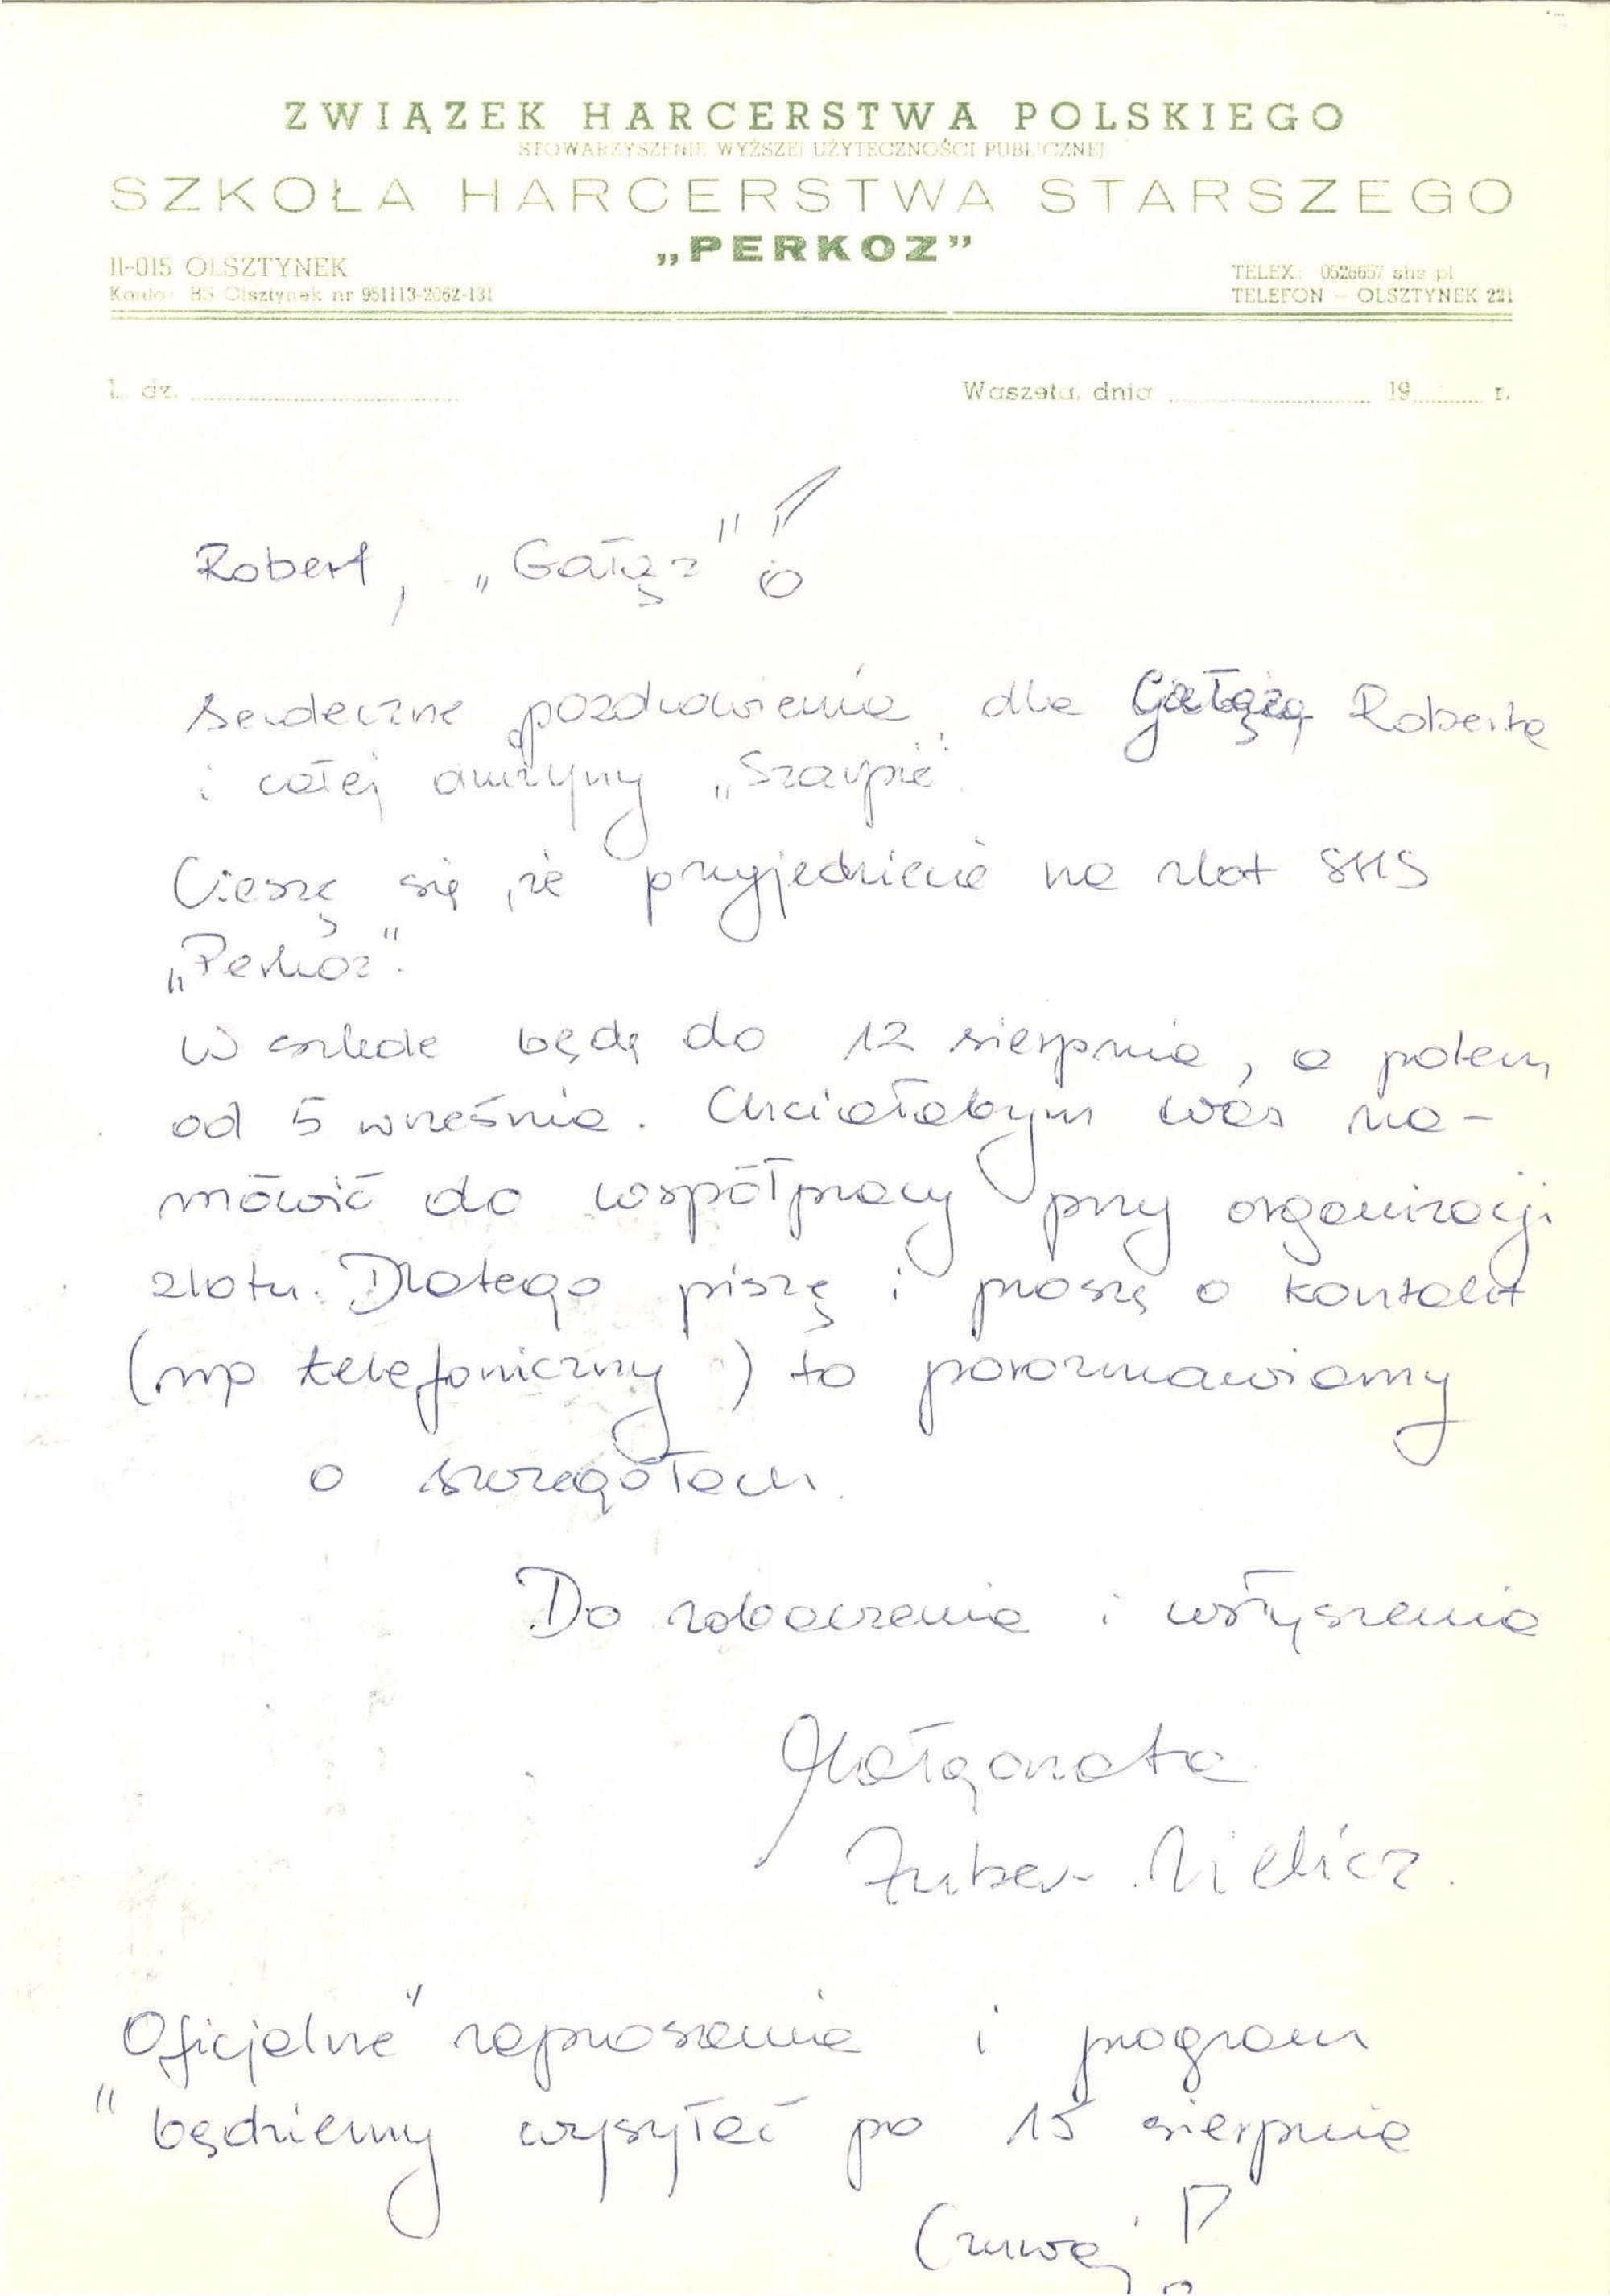 ZWIĄZEK HARCERSTWA POLSKIEGO
STOWARZYSZENIE WYŻSZEJ UŻYTECZNOŚCI PUBLICZNEJ
SZKOŁA HARCERSTWA STARSZEGO
„PERKOZ”
11-015 OLSZTYNEK
Konto: BS Olsztynek nr 951113-2062-131
TELEX: 0526657 shs pl
TELEFON – OLSZTYNEK 221
L. dz.
Waszeta, dnia 19 r.
Robert, „Gałąź”!
Serdeczne pozdrowienia dla Gałązą, Roberta
i całej drużyny „Szarpie”.
Cieszę się, że przyjedziecie na zlot SHS
„Perkoz”.
W szkole będę do 12 sierpnia, a potem
od 5 września. Chciałabym Was na-
mówić do współpracy przy organizacji
zlotu. Dlatego piszę i proszę o kontakt
(np telefoniczny) to porozmawiamy
o szczegółach.
Do zobaczenia i usłyszenia
Małgorzata
Zuber-Zielicz.
„Oficjalne” zaproszenia i program
będziemy wysyłać po 15 sierpnia
Czuwaj!